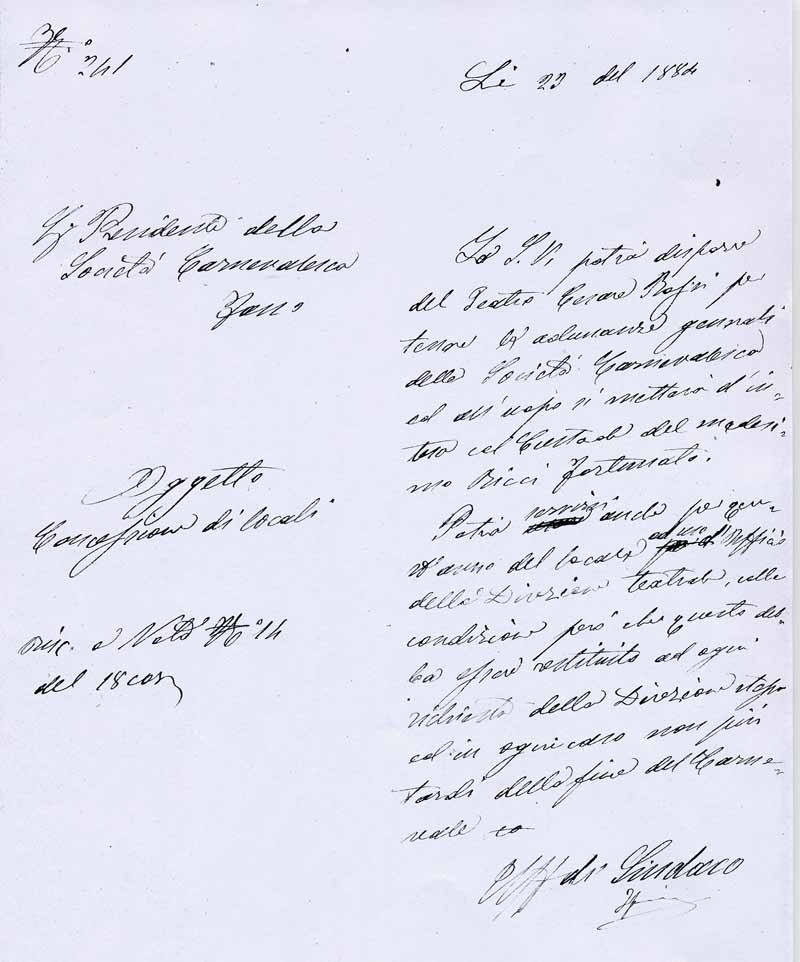 N.° 241
Lì 23 del 1884
Presidente della
Società Carnevalesca
Fano
Oggetto
Concessione di locali
a Nota N° 14
del 18 cor
La S. V. potrà disporre
del Teatro Cesare Rossi per
tenere le adunanze generali
della Società Carnevalesca
ed all'uopo si metterà d'in-
tesa col Custode del medesi-
mo Ricci Fortunato.
Potrà servirsi anche per que-
st'anno del locale ad uso d'Ufficio
della Direzione teatrale, colla
condizione però che questo deb-
ba essere restituito ad ogni
richiesta della Direzione stessa
ed in ogni caso non più
tardi della fine del Carne-
vale
Sindaco